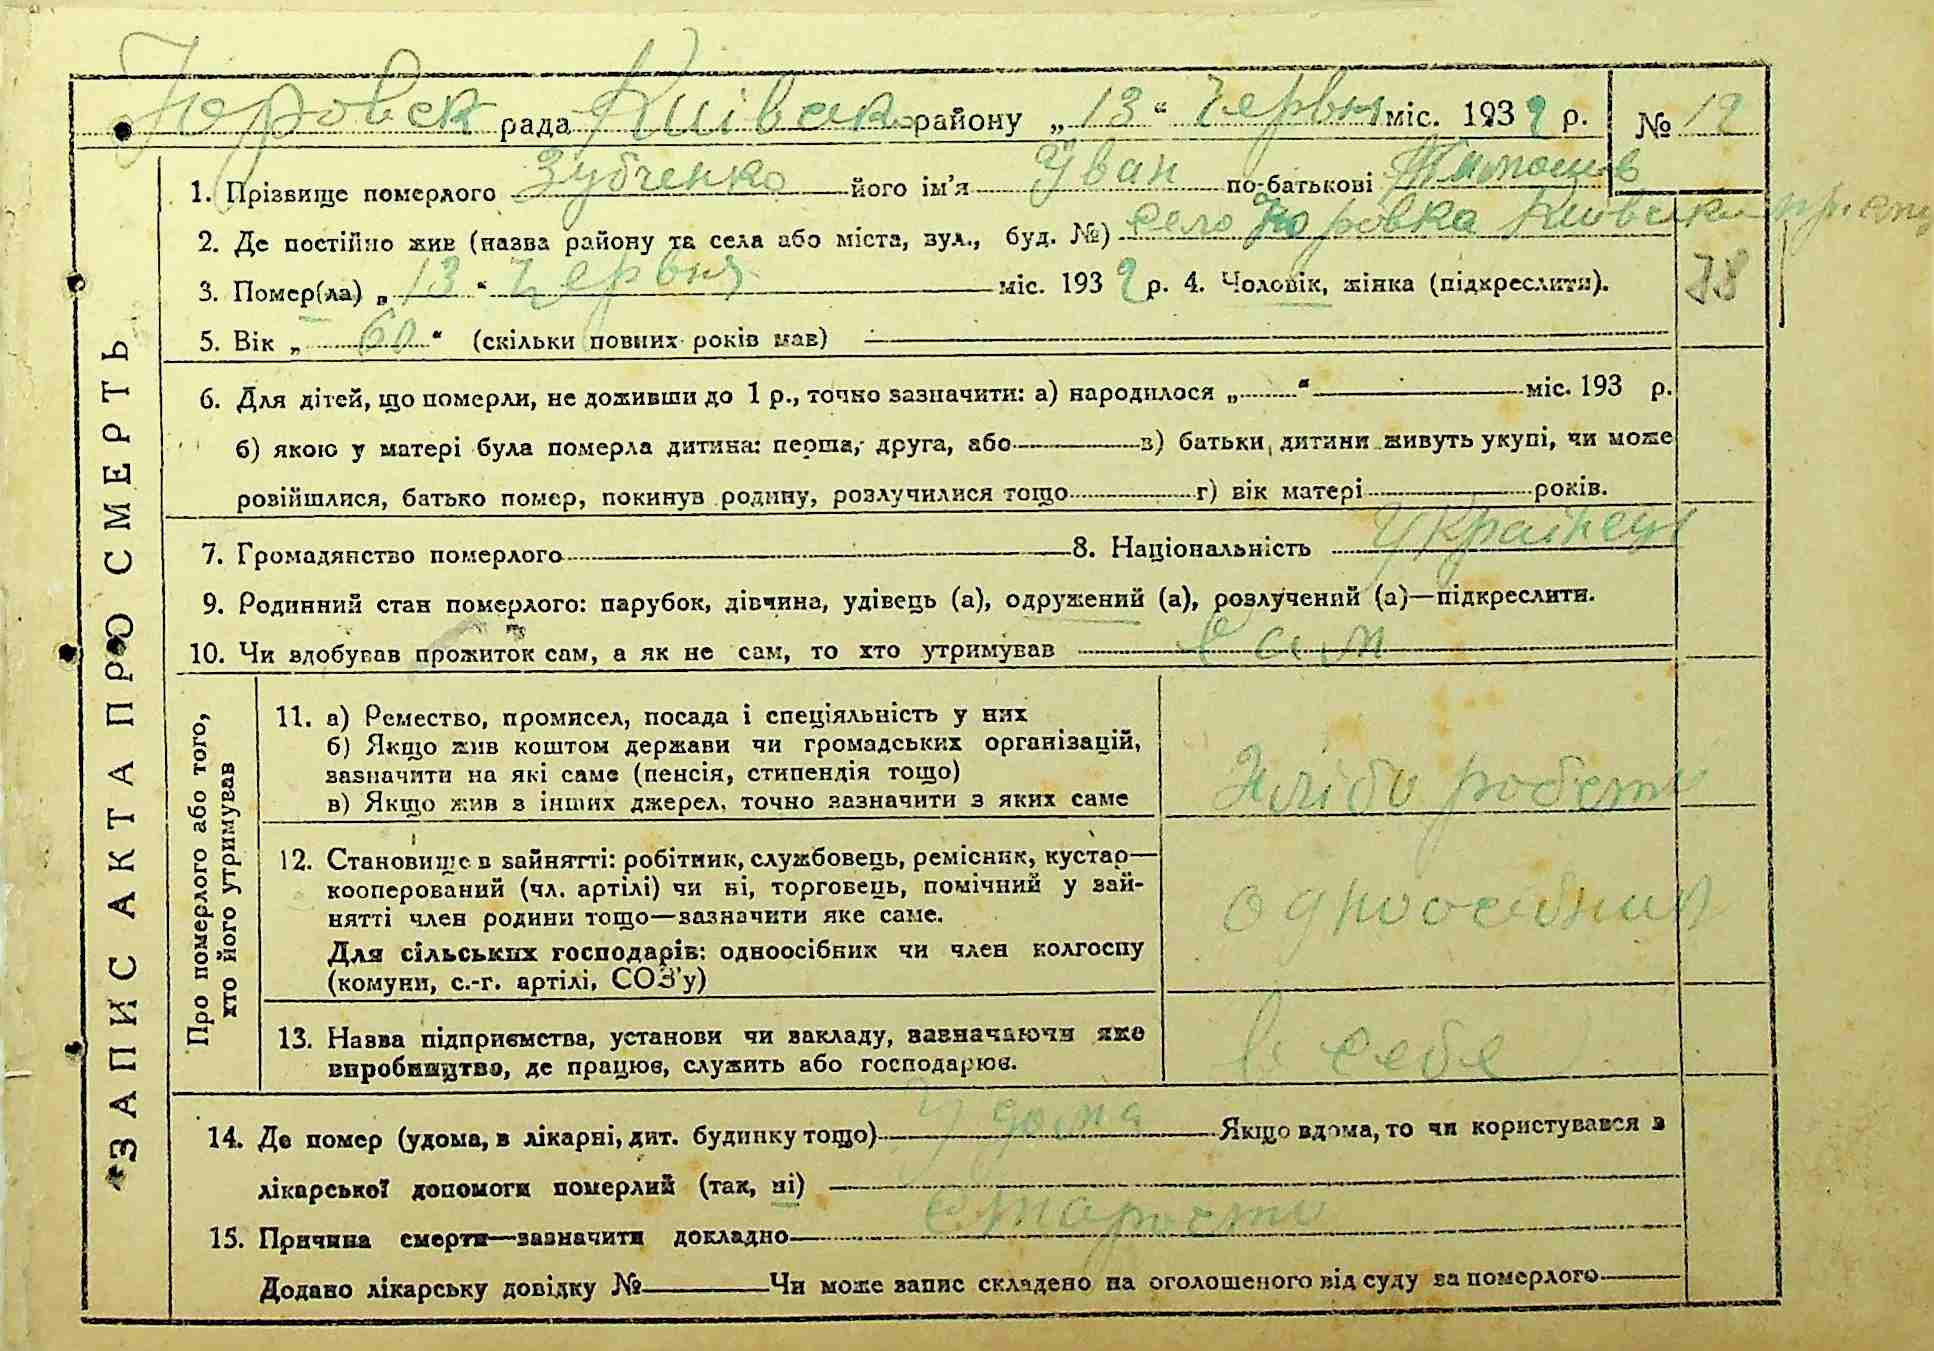 Юровск рада Київск району „13“ червня міс. 1932 р. № 12
1. Прізвище померлого Зубченко його ім'я Уван по-батькові Тимошів
2. Де постійно жив (назва району та села або міста, вул., буд. №) село Юровка Київськ
3. Помер(ла) „13“ червня міс. 1932 р. 4. Чоловік, жінка (підкреслити).
78
5. Вік „60“ (скільки повних років мав)
6. Для дітей, що померли, не доживши до 1 р., точно зазначити: а) народилося „ “ міс. 193 р.
б) якою у матері була померла дитина: перша, друга, або в) батьки дитини живуть укупі, чи може
розійшлися, батько помер, покинув родину, розлучилися тощо г) вік матері років.
7. Громадянство померлого 8. Національність Українец
9. Родинний стан померлого: парубок, дівчина, удівець (а), одружений (а), розлучений (а)—підкреслити.
10. Чи здобував прожиток сам, а як не сам, то хто утримував сам
ЗАПИС АКТА ПРО СМЕРТЬ
Про померлого або того,
хто його утримував
11. а) Ремество, промисел, посада і спеціяльність у них
б) Якщо жив коштом держави чи громадських організацій,
зазначити на які саме (пенсія, стипендія тощо)
в) Якщо жив з інших джерел, точно зазначити з яких саме
Хлібо роботи
12. Становище в зайнятті: робітник, службовець, ремісник, кустар—
кооперований (чл. артілі) чи ні, торговець, помічний у зай-
нятті член родини тощо—зазначити яке саме.
Для сільських господарів: одноосібник чи член колгоспу
(комуни, с.-г. артілі, СОЗ'у)
одноосебник
13. Назва підприємства, установи чи закладу, зазначаючи яке
виробництво, де працює, служить або господарює.
в себе
14. Де помер (удома, в лікарні, дит. будинку тощо) У дома Якщо вдома, то чи користувався з
лікарської допомоги померлий (так, ні)
15. Причина смерти—зазначити докладно старости
Додано лікарську довідку № Чи може запис складено на оголошеного від суду за померлого